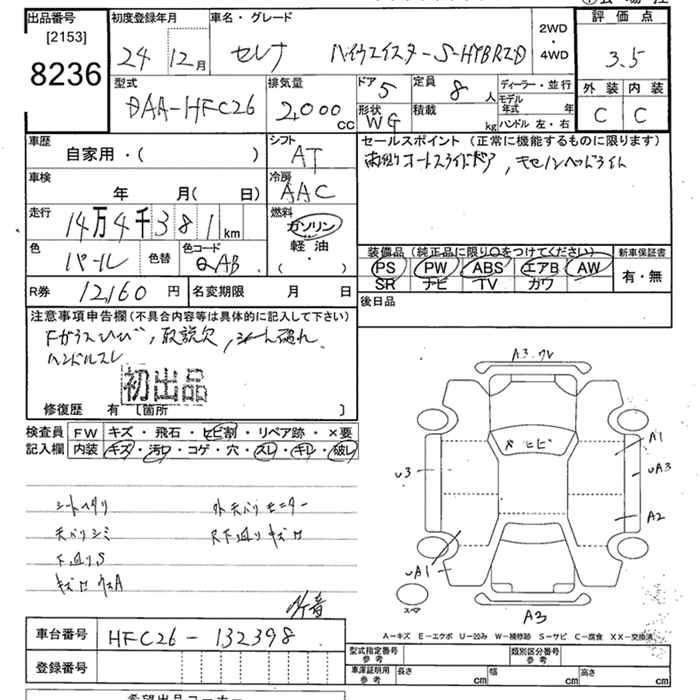 出品番号
[2153]
8236
初度登録年月
24 12月
車名・グレード
セレナ ハイウエイスターS-HYBRID
2WD
・
4WD
評価点
3.5
外装 内装
C C
型式
DAA-HFC26
排気量
2,000 cc
ドア 5
定員 8 人
形状 WG
積載 kg
ディーラー・並行
モデル年式 年
ハンドル 左・右
車歴
自家用・( )
シフト
AT
セールスポイント (正常に機能するものに限ります)
両側オートスライドドア, キセノンヘッドライト
車検
年 月( 日)
冷房
AAC
走行
14万4千381km
燃料
ガソリン
軽油
( ・ )
色
パール
色替
色コード
QAB
装備品 (純正品に限り○をつけてください)
PS PW ABS エアB AW
SR ナビ TV カワ
新車保証書
有・無
R券 12,160 円
名変期限 月 日
後日品
注意事項申告欄(不具合内容等は具体的に記入して下さい)
Fガラスひび, 取説欠, シート破れ
ハンドルスレ
初出品
修復歴 有 〔箇所 〕
検査員
記入欄
FW キズ・飛石・ヒビ割・リペア跡・×要
内装 キズ・汚れ・コゲ・穴・スレ・キレ・破レ
シートヘタリ
天バリシミ
下廻りS
外天バリモニター
A3.ワレ
×ヒビ
A1
U3
UA3
A2
UA1
スペア
A3
A-キズ E-エクボ U-凹み W-補修跡 S-サビ C-腐食 XX-交換済
車台番号 HFC26-132398
登録番号
型式指定番号
参考
類別区分番号
参考
車庫証明用
参考
長さ cm
幅 cm
高さ cm
希望出品コーナー